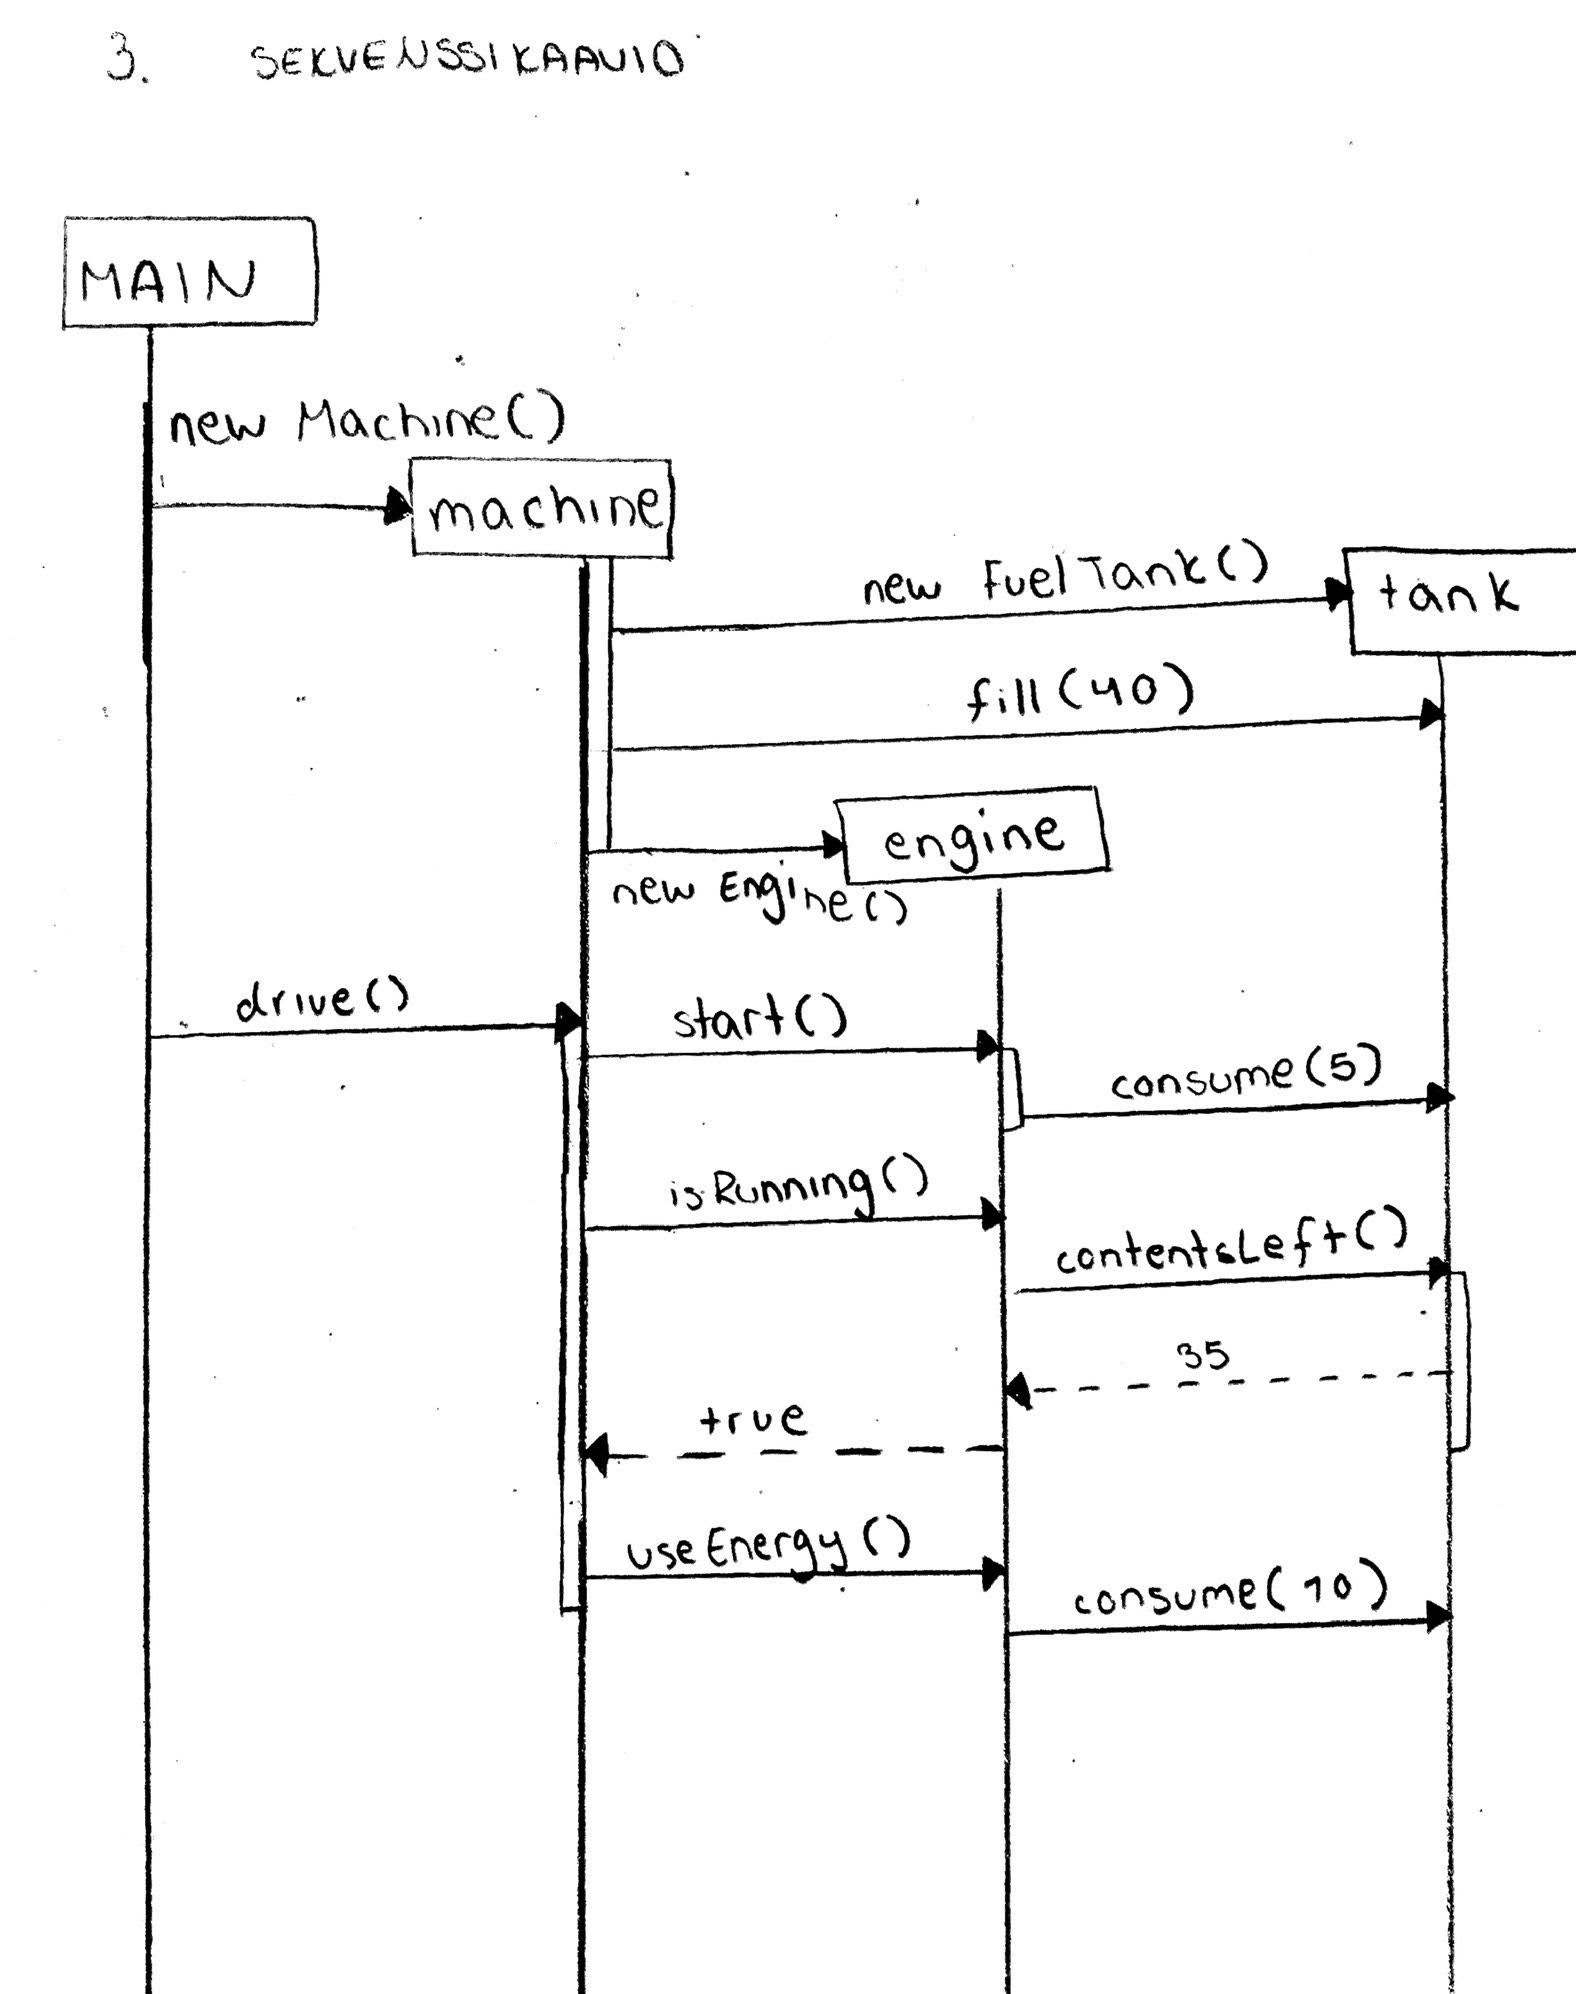 3. SEKVENSSIKAAVIO
MAIN
new Machine()
machine
new FuelTank()
tank
fill(40)
engine
new Engine()
drive()
start()
consume(5)
isRunning()
contentsLeft()
35
true
useEnergy()
consume(10)